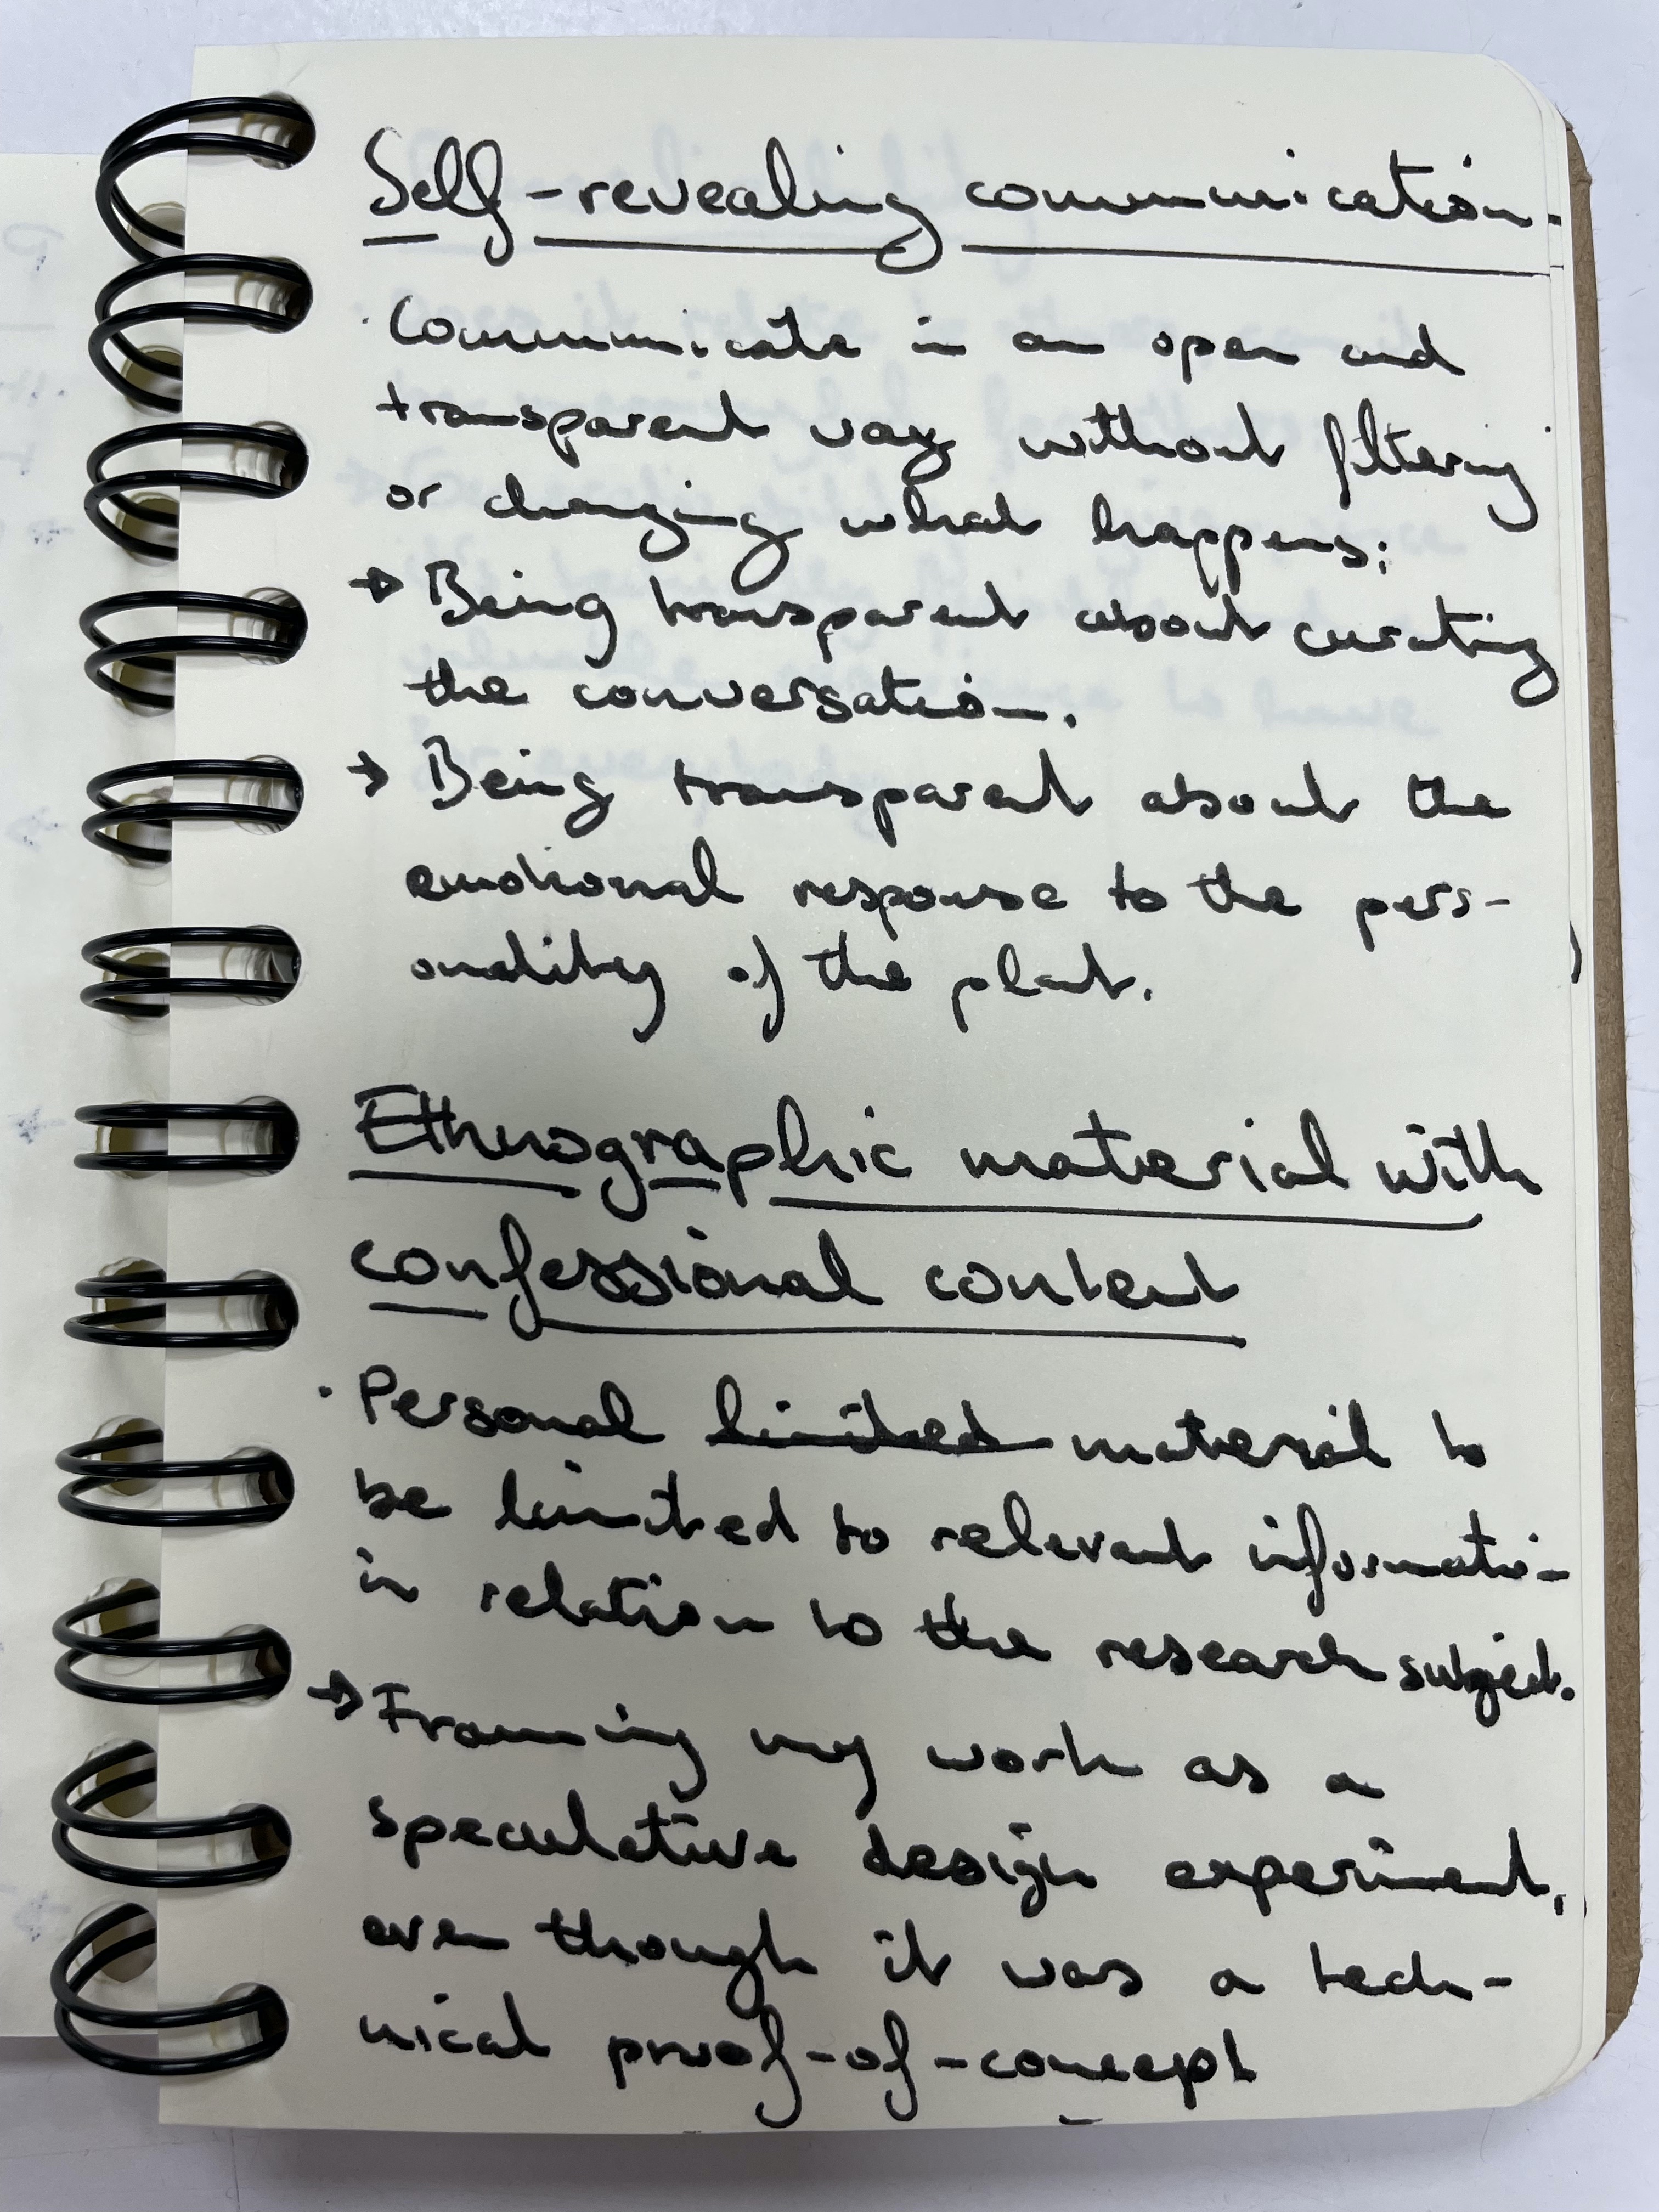 Self-revealing communication
· Communicate in an open and
transparent way without filtering
or changing what happens:
→ Being transparent about curating
the conversation.
→ Being transparent about the
emotional response to the pers-
onality of the plant.
Ethnographic material with
confessional content
· Personal limited material to
be limited to relevant information
in relation to the research subject.
→ Framing my work as a
speculative design experiment,
even though it was a tech-
nical proof-of-concept